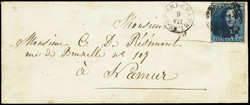 Monsieur
Monsieur C. D. Piémont
rue de Bruxelle n° 107
à Namur